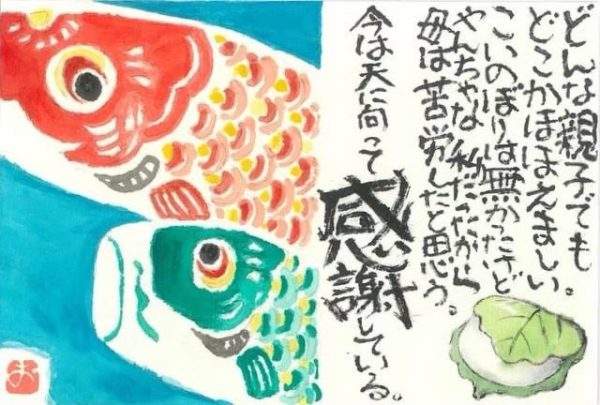 どんな親子でも
どこかほほえましい。
こいのぼりは無かったけど
やんちゃな私だったから
母は苦労したと思う。
今は天に向って
感謝している。